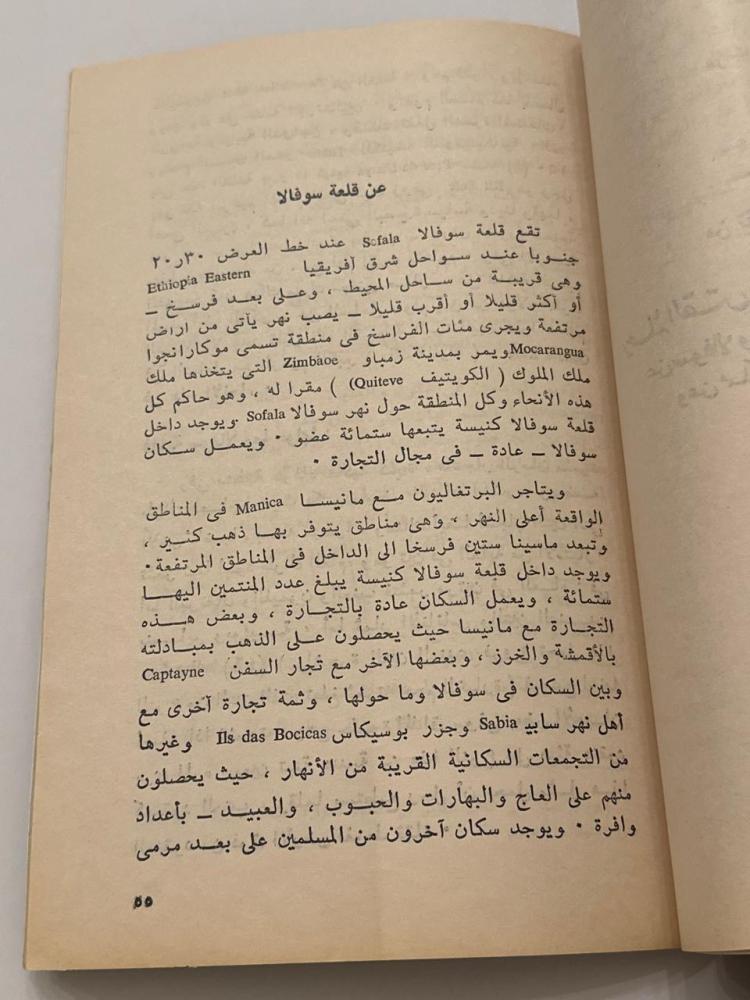 عن قلعة سوفالا
تقع قلعة سوفالا Sofala عند خط العرض ٣٠ر٢٠
جنوبا عند سواحل شرق آفريقيا Ethiopia Eastern
وهى قريبة من ساحل المحيط ، وعلى بعد فرسخ ــ
أو أكثر قليلا أو أقرب قليلا ــ يصب نهر يأتى من اراض
مرتفعة ويجرى مئات الفراسخ فى منطقة تسمى موكارانجوا
Mocarangua ويمر بمدينة زمباو Zimbaoe التى يتخذها ملك
ملك الملوك ( الكويتيف Quiteve) ) مقرا له ، وهو حاكم كل
هذه الأنحاء وكل المنطقة حول نهر سوفالا Sofala .ويوجد داخل
قلعة سوفالا كنيسة يتبعها ستمائة عضو ٠ ويعمل سكان
سوفالا ــ عادة ــ فى مجال التجارة ٠
ويتاجر البرتغاليون مع مانيسا Manica فى المناطق
الواقعة أعلى النهر ، وهى مناطق يتوفر بها ذهب كثير ،
وتبعد ماسينا ستين فرسخا الى الداخل فى المناطق المرتفعة٠
ويوجد داخل قلعة سوفالا كنيسة يبلغ عدد المنتمين اليها
ستمائة ، ويعمل السكان عادة بالتجارة ، وبعض هذه
التجارة مع مانيسا حيث يحصلون على الذهب بمبادلته
بالأقمشة والخرز ، وبعضها الآخر مع تجار السفن Captayne
وبين السكان فى سوفالا وما حولها ، وثمة تجارة آخرى مع
أهل نهر سابيه Sabia وجزر بوسيكاس Ils das Bocicas وغيرها
من التجمعات السكانية القريبة من الأنهار ، حيث يحصلون
منهم على العاج والبهارات والحبوب ، والعبيد ــ بأعداد
وافرة ٠ ويوجد سكان آخرون من المسلمين على بعد مرمى
٥٥